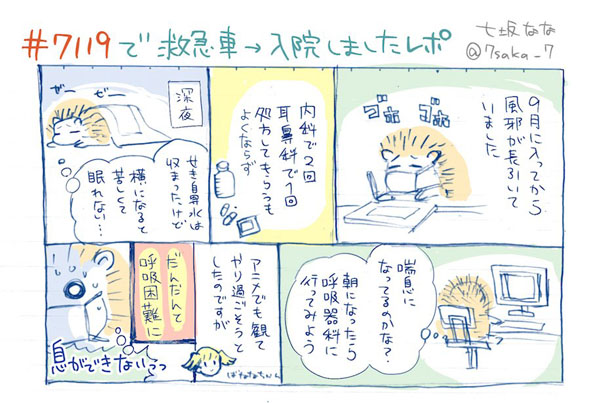 #7119で救急車→入院しましたレポ
七坂なな
@7saka_7
9月に入ってから
風邪が長引いて
いました
ゴホ
ゴホ
内科で2回
耳鼻科で1回
処方してもらうも
よくならず
深夜
ぜー
ぜー
せき鼻水は
収まったけど
横になると
苦しくて
眠れない…
喘息に
なってるのかな?
朝になったら
呼吸器科に
行ってみよう
アニメでも観て
やり過ごそうと
したのですが
ばななちゃん
だんだんと
呼吸困難に
息ができないっっ